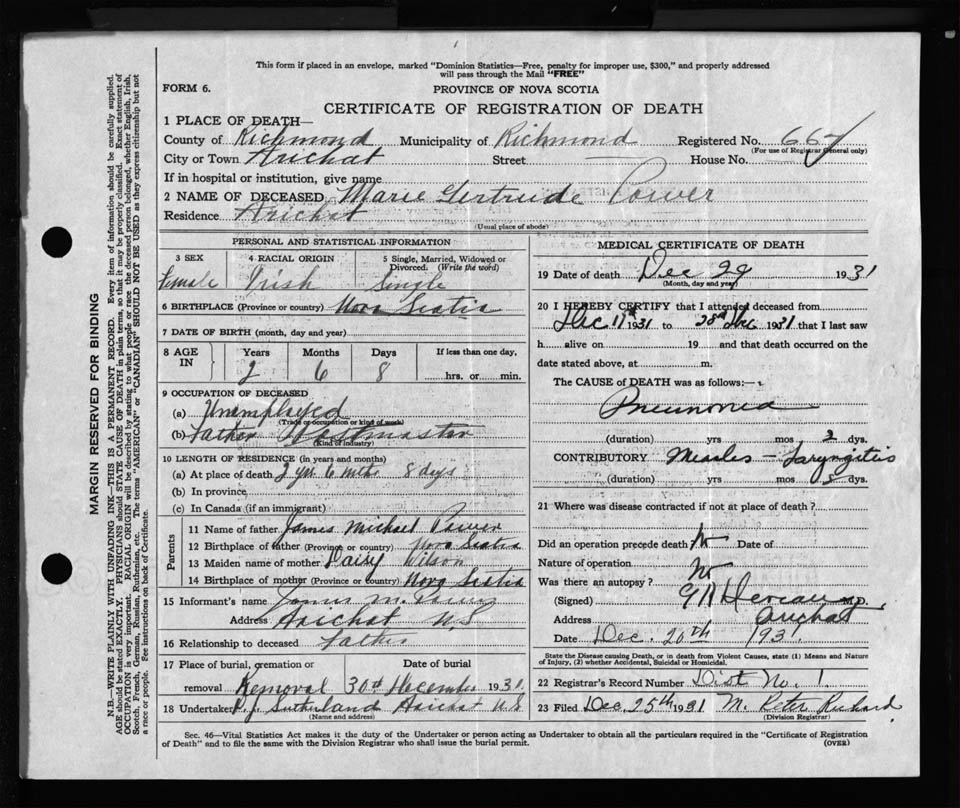 This form if placed in an envelope, marked "Dominion Statistics—Free, penalty for improper use, $300," and properly addressed
will pass through the Mail "FREE"
FORM 6.
PROVINCE OF NOVA SCOTIA
CERTIFICATE OF REGISTRATION OF DEATH
1 PLACE OF DEATH—
County of Richmond Municipality of Richmond Registered No. 667
(For use of Registrar General only)
City or Town Arichat Street — House No.
If in hospital or institution, give name
2 NAME OF DECEASED Marie Gertrude Power
Residence Arichat
(Usual place of abode)
PERSONAL AND STATISTICAL INFORMATION
3 SEX 4 RACIAL ORIGIN 5 Single, Married, Widowed or
Divorced. (Write the word)
Female Irish Single
6 BIRTHPLACE (Province or country) Nova Scotia
7 DATE OF BIRTH (month, day and year)
8 AGE IN Years Months Days If less than one day,
2 6 8 hrs. or min.
9 OCCUPATION OF DECEASED
(a) Unemployed
(Trade or occupation or kind of work)
(b) Father Postmaster
(Kind of industry)
10 LENGTH OF RESIDENCE (in years and months)
(a) At place of death 2 yrs 6 mths 8 days
(b) In province
(c) In Canada (if an immigrant)
Parents
11 Name of father James Michael Power
12 Birthplace of father (Province or country) Nova Scotia
13 Maiden name of mother Daisy Wilson
14 Birthplace of mother (Province or country) Nova Scotia
15 Informant's name James M. Power
Address Arichat N.S
16 Relationship to deceased Father
17 Place of burial, cremation or Date of burial
removal Removal 30th December 1931
18 Undertaker P.J. Sutherland Arichat N.S
(Name and address)
MEDICAL CERTIFICATE OF DEATH
19 Date of death Dec 29 1931
(Month, day and year)
20 I HEREBY CERTIFY that I attended deceased from
Dec 11th 1931 to 28th Dec 1931 that I last saw
h alive on 19 and that death occurred on the
date stated above, at m.
The CAUSE OF DEATH was as follows:—
Pneumonia
(duration) yrs mos 2 dys.
CONTRIBUTORY Measles — Laryngitis
(duration) yrs mos dys.
21 Where was disease contracted if not at place of death?
Did an operation precede death No Date of
Nature of operation
Was there an autopsy? No
(Signed) M.D.
Address Arichat
Date Dec. 20th 1931.
State the Disease causing Death, or in death from Violent Causes, state (1) Means and Nature
of Injury, (2) whether Accidental, Suicidal or Homicidal.
22 Registrar's Record Number Dist No. 1.
23 Filed Dec. 25th 1931 M. Peter Richard
(Division Registrar)
Sec. 46—Vital Statistics Act makes it the duty of the Undertaker or person acting as Undertaker to obtain all the particulars required in the "Certificate of Registration
of Death" and to file the same with the Division Registrar who shall issue the burial permit.
(OVER)
MARGIN RESERVED FOR BINDING
N.B.—WRITE PLAINLY WITH UNFADING INK—THIS IS A PERMANENT RECORD. Every item of information should be carefully supplied.
AGE should be stated EXACTLY. PHYSICIANS should STATE CAUSE OF DEATH in plain terms, so that it may be properly classified. Exact statement of
OCCUPATION is very important. RACIAL ORIGIN will be described by stating to what people or race the deceased person belonged, whether English, Irish,
Scotch, French, German, Russian, Ruthenian, etc. The terms "AMERICAN" or "CANADIAN" SHOULD NOT BE USED as they express citizenship but not
a race or people. Fee instructions on back of Certificate.